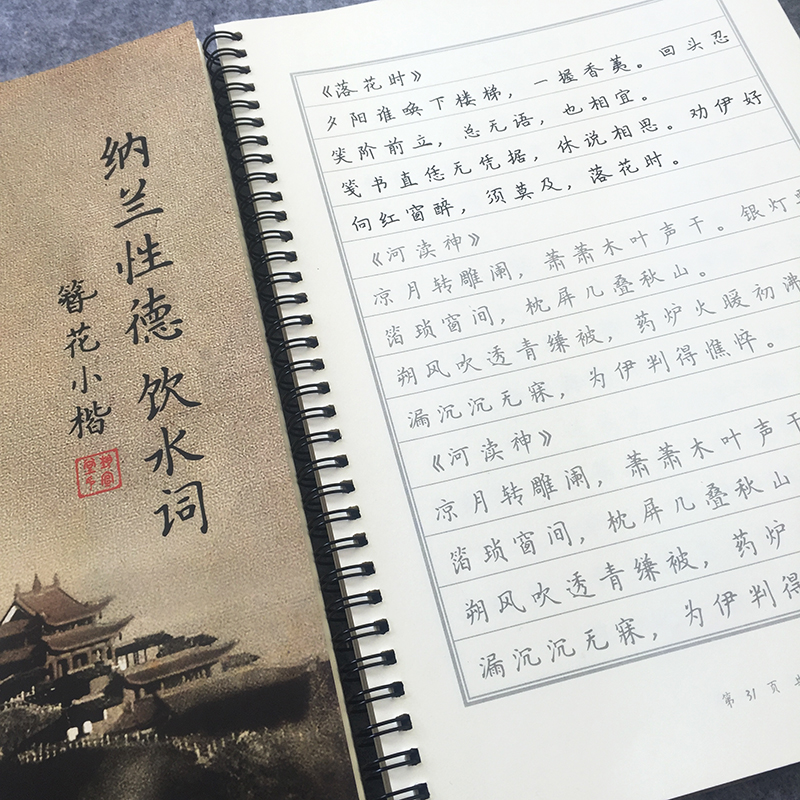 纳兰性德 饮水词
簪花小楷
《落花时》
夕阳谁唤下楼梯，一握香荑。回头忍
笑阶前立，总无语，也相宜。
笺书直恁无凭据，休说相思。劝伊好
向红窗醉，须莫及，落花时。
《河渎神》
凉月转雕阑，萧萧木叶声干。银灯
箔琐窗间，枕屏几叠秋山。
朔风吹透青缣被，药炉火暖初沸
漏沉沉无寐，为伊判得憔悴。
《河渎神》
凉月转雕阑，萧萧木叶声干
箔琐窗间，枕屏几叠秋山
朔风吹透青缣被，药炉
漏沉沉无寐，为伊判得
第 31 页